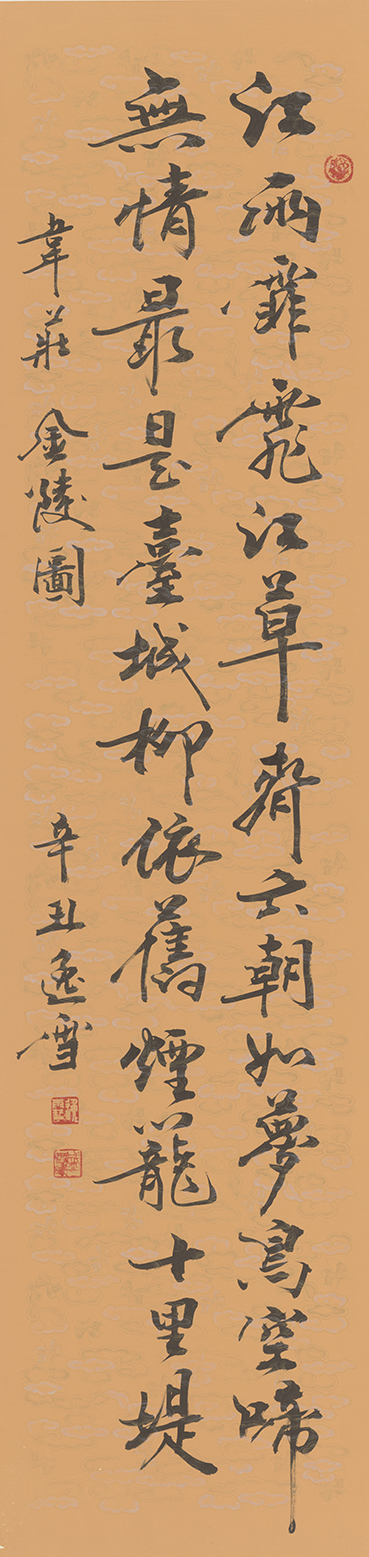 江雨霏霏江草齊六朝如夢鳥空啼
無情最是臺城柳依舊煙籠十里堤
韋莊 金陵圖 辛丑逸雪